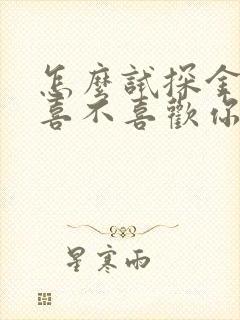 怎麼試探金
喜不喜歡你
星寒雨